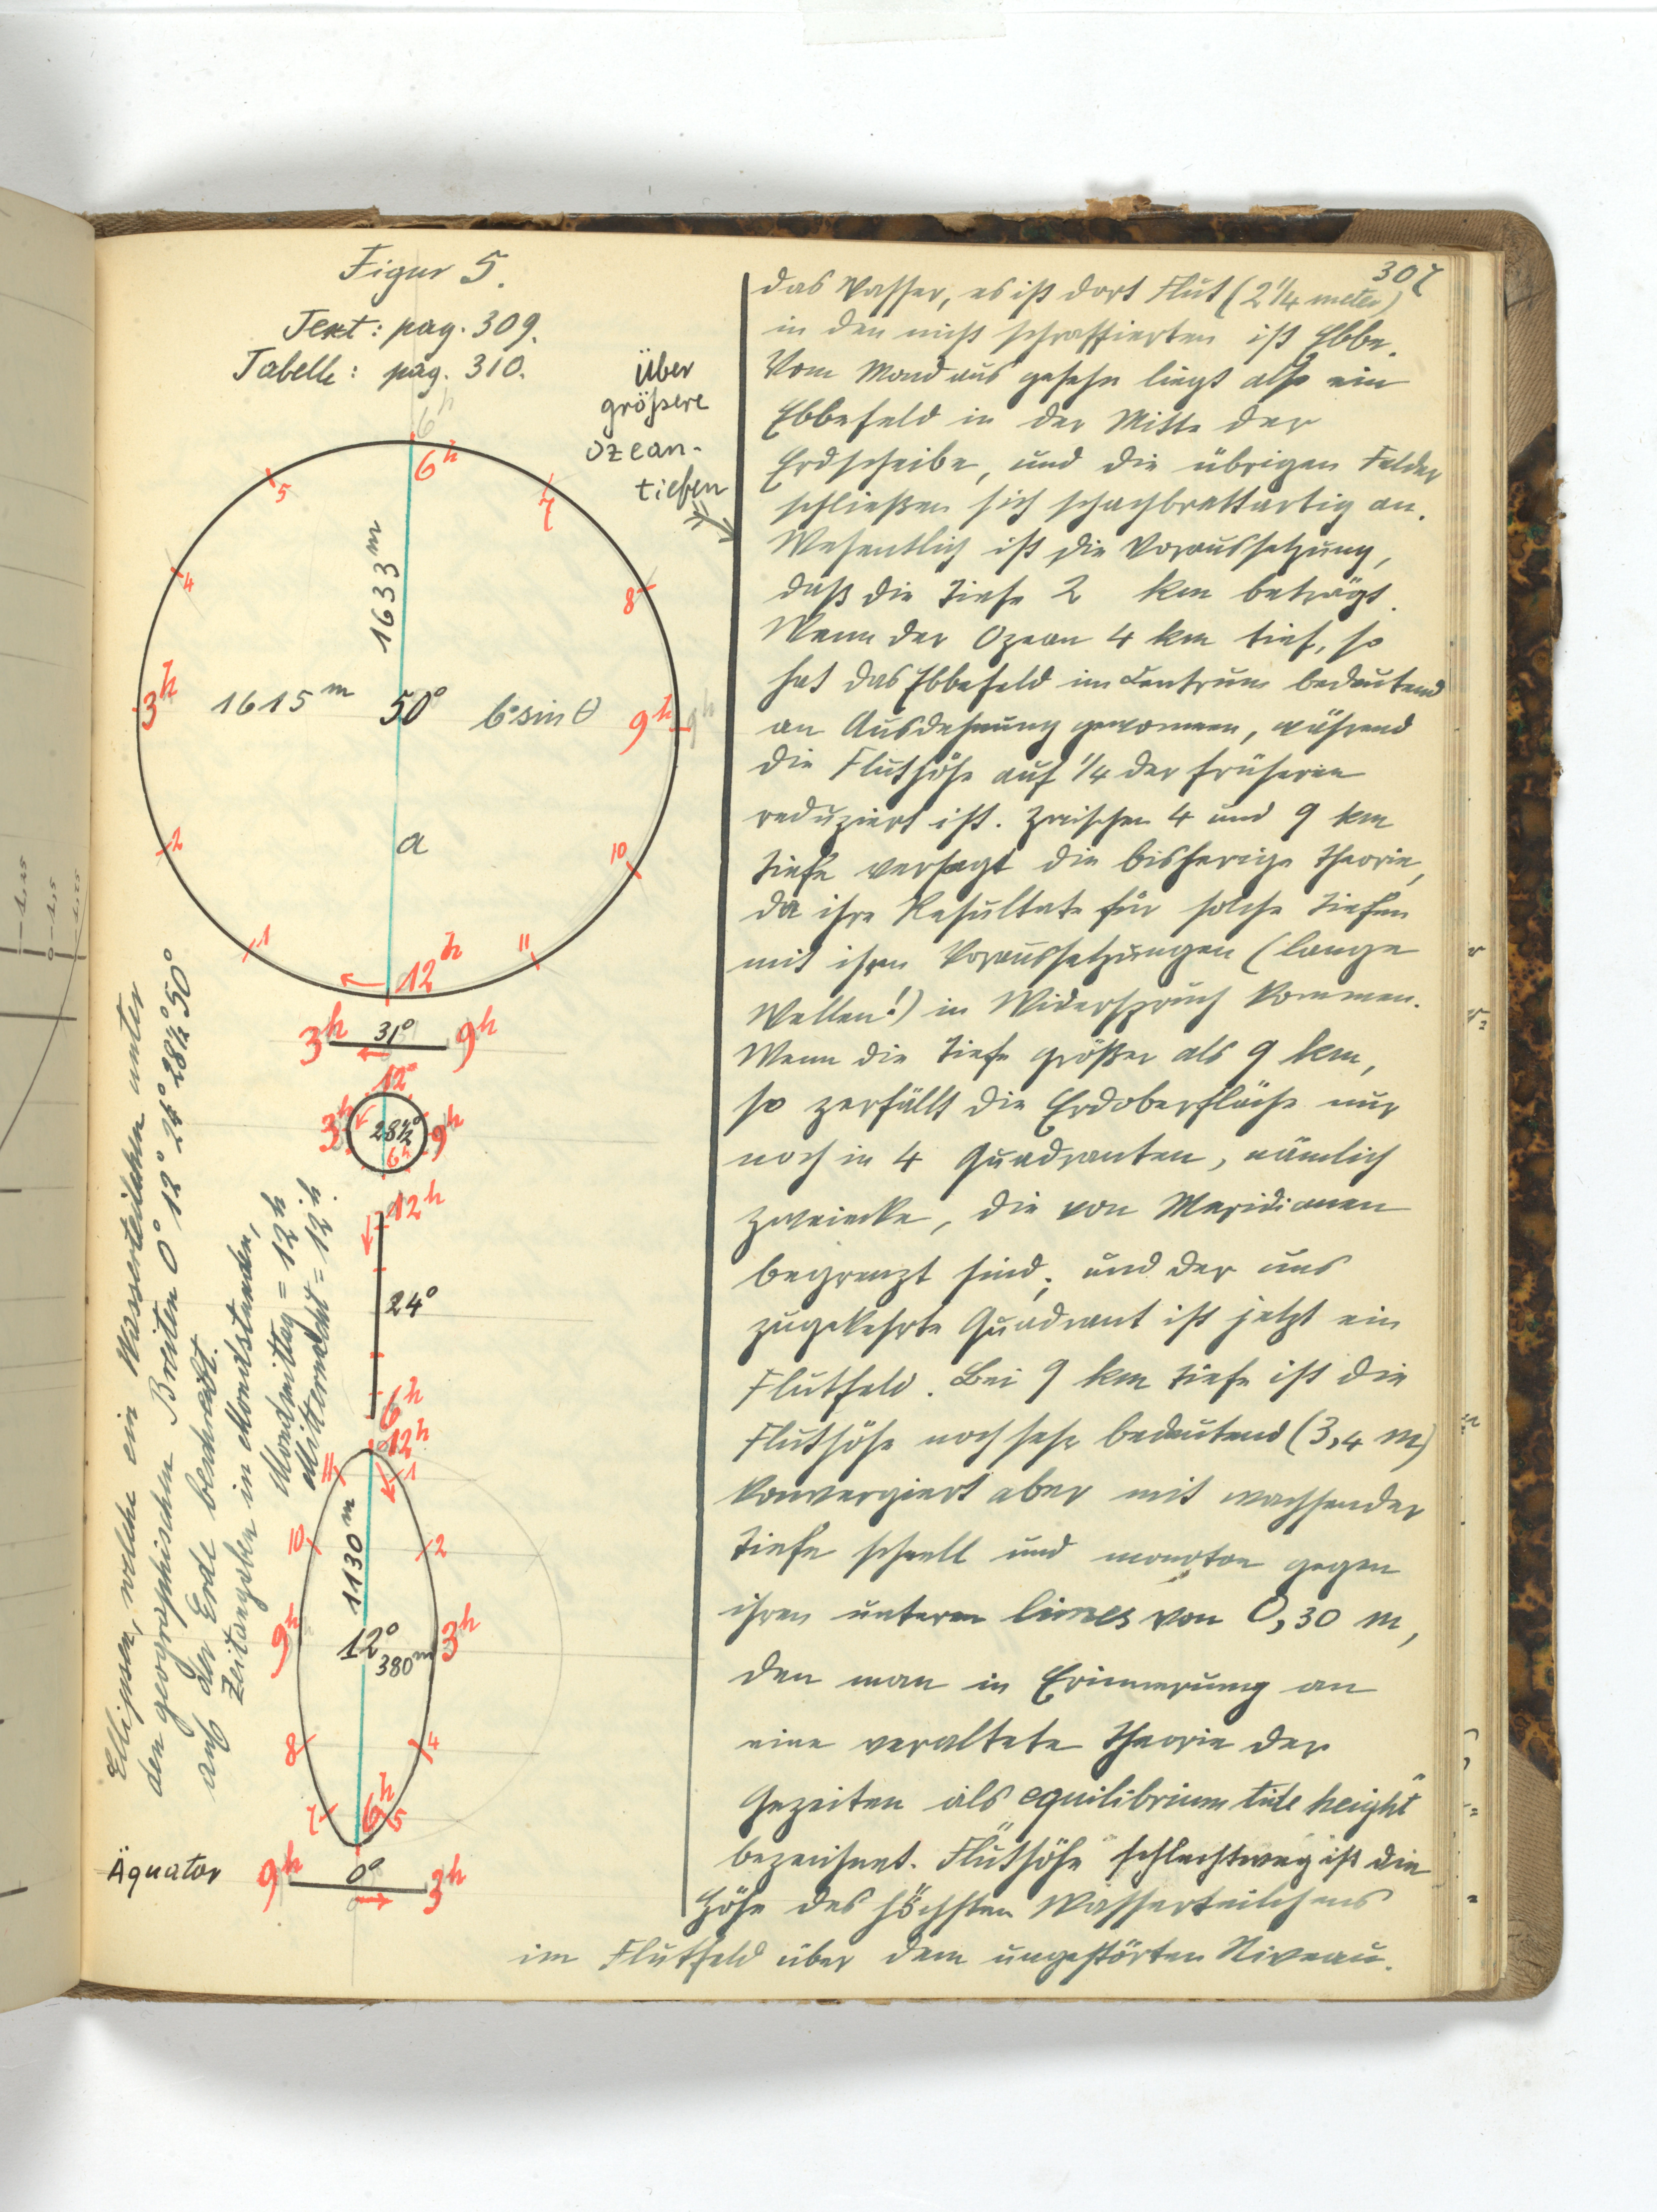 307
Figur 5.
Text: pag. 309.
Tabelle: pag. 310.
Über
größere
Ozean-
tiefen
6h
6h
5
7
4
8
1633 m
3h
1615 m
50°
b·sin θ
9h
9h
2
a
10
1
11
12h
3h
31°
9h
12h
3h
28½°
9h
6h
12h
24°
6h
12h
11
1
10
2
1130 m
9h
12°
380 m
3h
8
4
7
6h
5
Äquator
9h
0°
3h
Ellipsen, welche ein Wasserteilchen unter
den geographischen Breiten 0° 12° 24° 28½° 50°
auf der Erde beschreibt.
Zeitangaben in Mondstunden,
Mondmittag = 12h
Mitternacht = 12h.
das Wasser, es ist dort Flut (2 1/4 meter)
in den nicht schraffierten ist Ebbe.
Vom Mond aus gesehn liegt also ein
Ebbefeld in der Mitte der
Erdscheibe, und die übrigen Felder
schließen sich schachbrettartig an.
Wesentlich ist die Voraussetzung,
daß die Tiefe 2 km beträgt.
Wenn der Ozean 4 km tief, so
hat das Ebbefeld im Centrum bedeutend
an Ausdehnung gewonnen, während
die Fluthöhe auf 1/4 der früheren
reduziert ist. Zwischen 4 und 9 km
Tiefe versagt die bisherige Theorie,
da ihre Resultate für solche Tiefen
mit ihren Voraussetzungen (lange
Wellen!) in Widerspruch kommen.
Wenn die Tiefe größer als 9 km,
so zerfällt die Erdoberfläche nur
noch in 4 Quadranten, nämlich
Zweiecke, die von Meridianen
begrenzt sind, und der uns
zugekehrte Quadrant ist jetzt ein
Flutfeld. Bei 9 km Tiefe ist die
Fluthöhe noch sehr bedeutend (3,4 m)
konvergiert aber mit wachsender
Tiefe schnell und monoton gegen
ihren unteren limes von 0,30 m,
den man in Erinnerung an
eine veraltete Theorie der
Gezeiten als equilibrium tide height"
bezeichnet. "Fluthöhe" schlechtweg ist die
Höhe des höchsten Wasserteilchens
im Flutfeld über dem ungestörten Niveau.